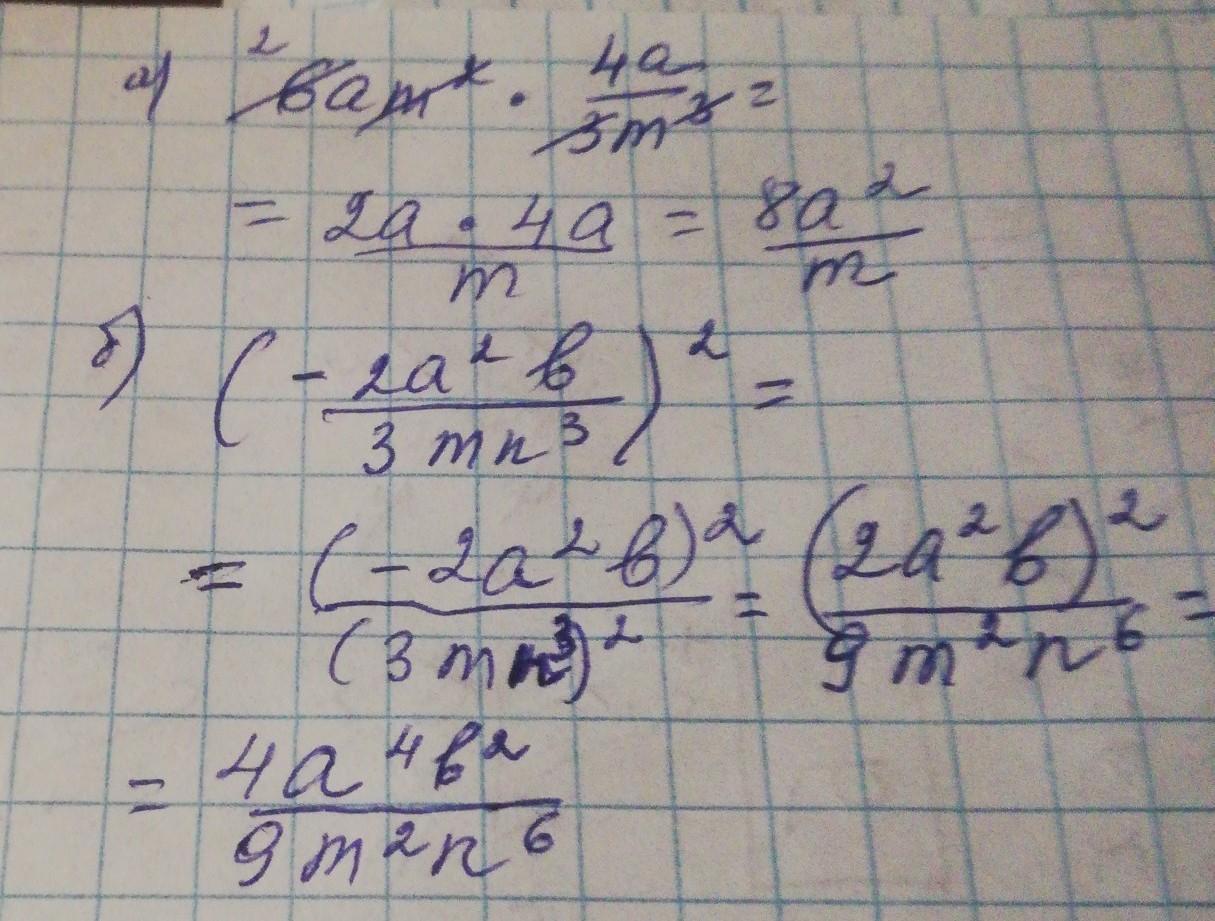 а) 6am² · 4a/3m³ =
= 2a · 4a/m = 8a²/m
б) (- 2a²b/3mn³)² =
= (-2a²b)²/(3mn³)² = (2a²b)²/9m²n⁶ =
= 4a⁴b²/9m²n⁶